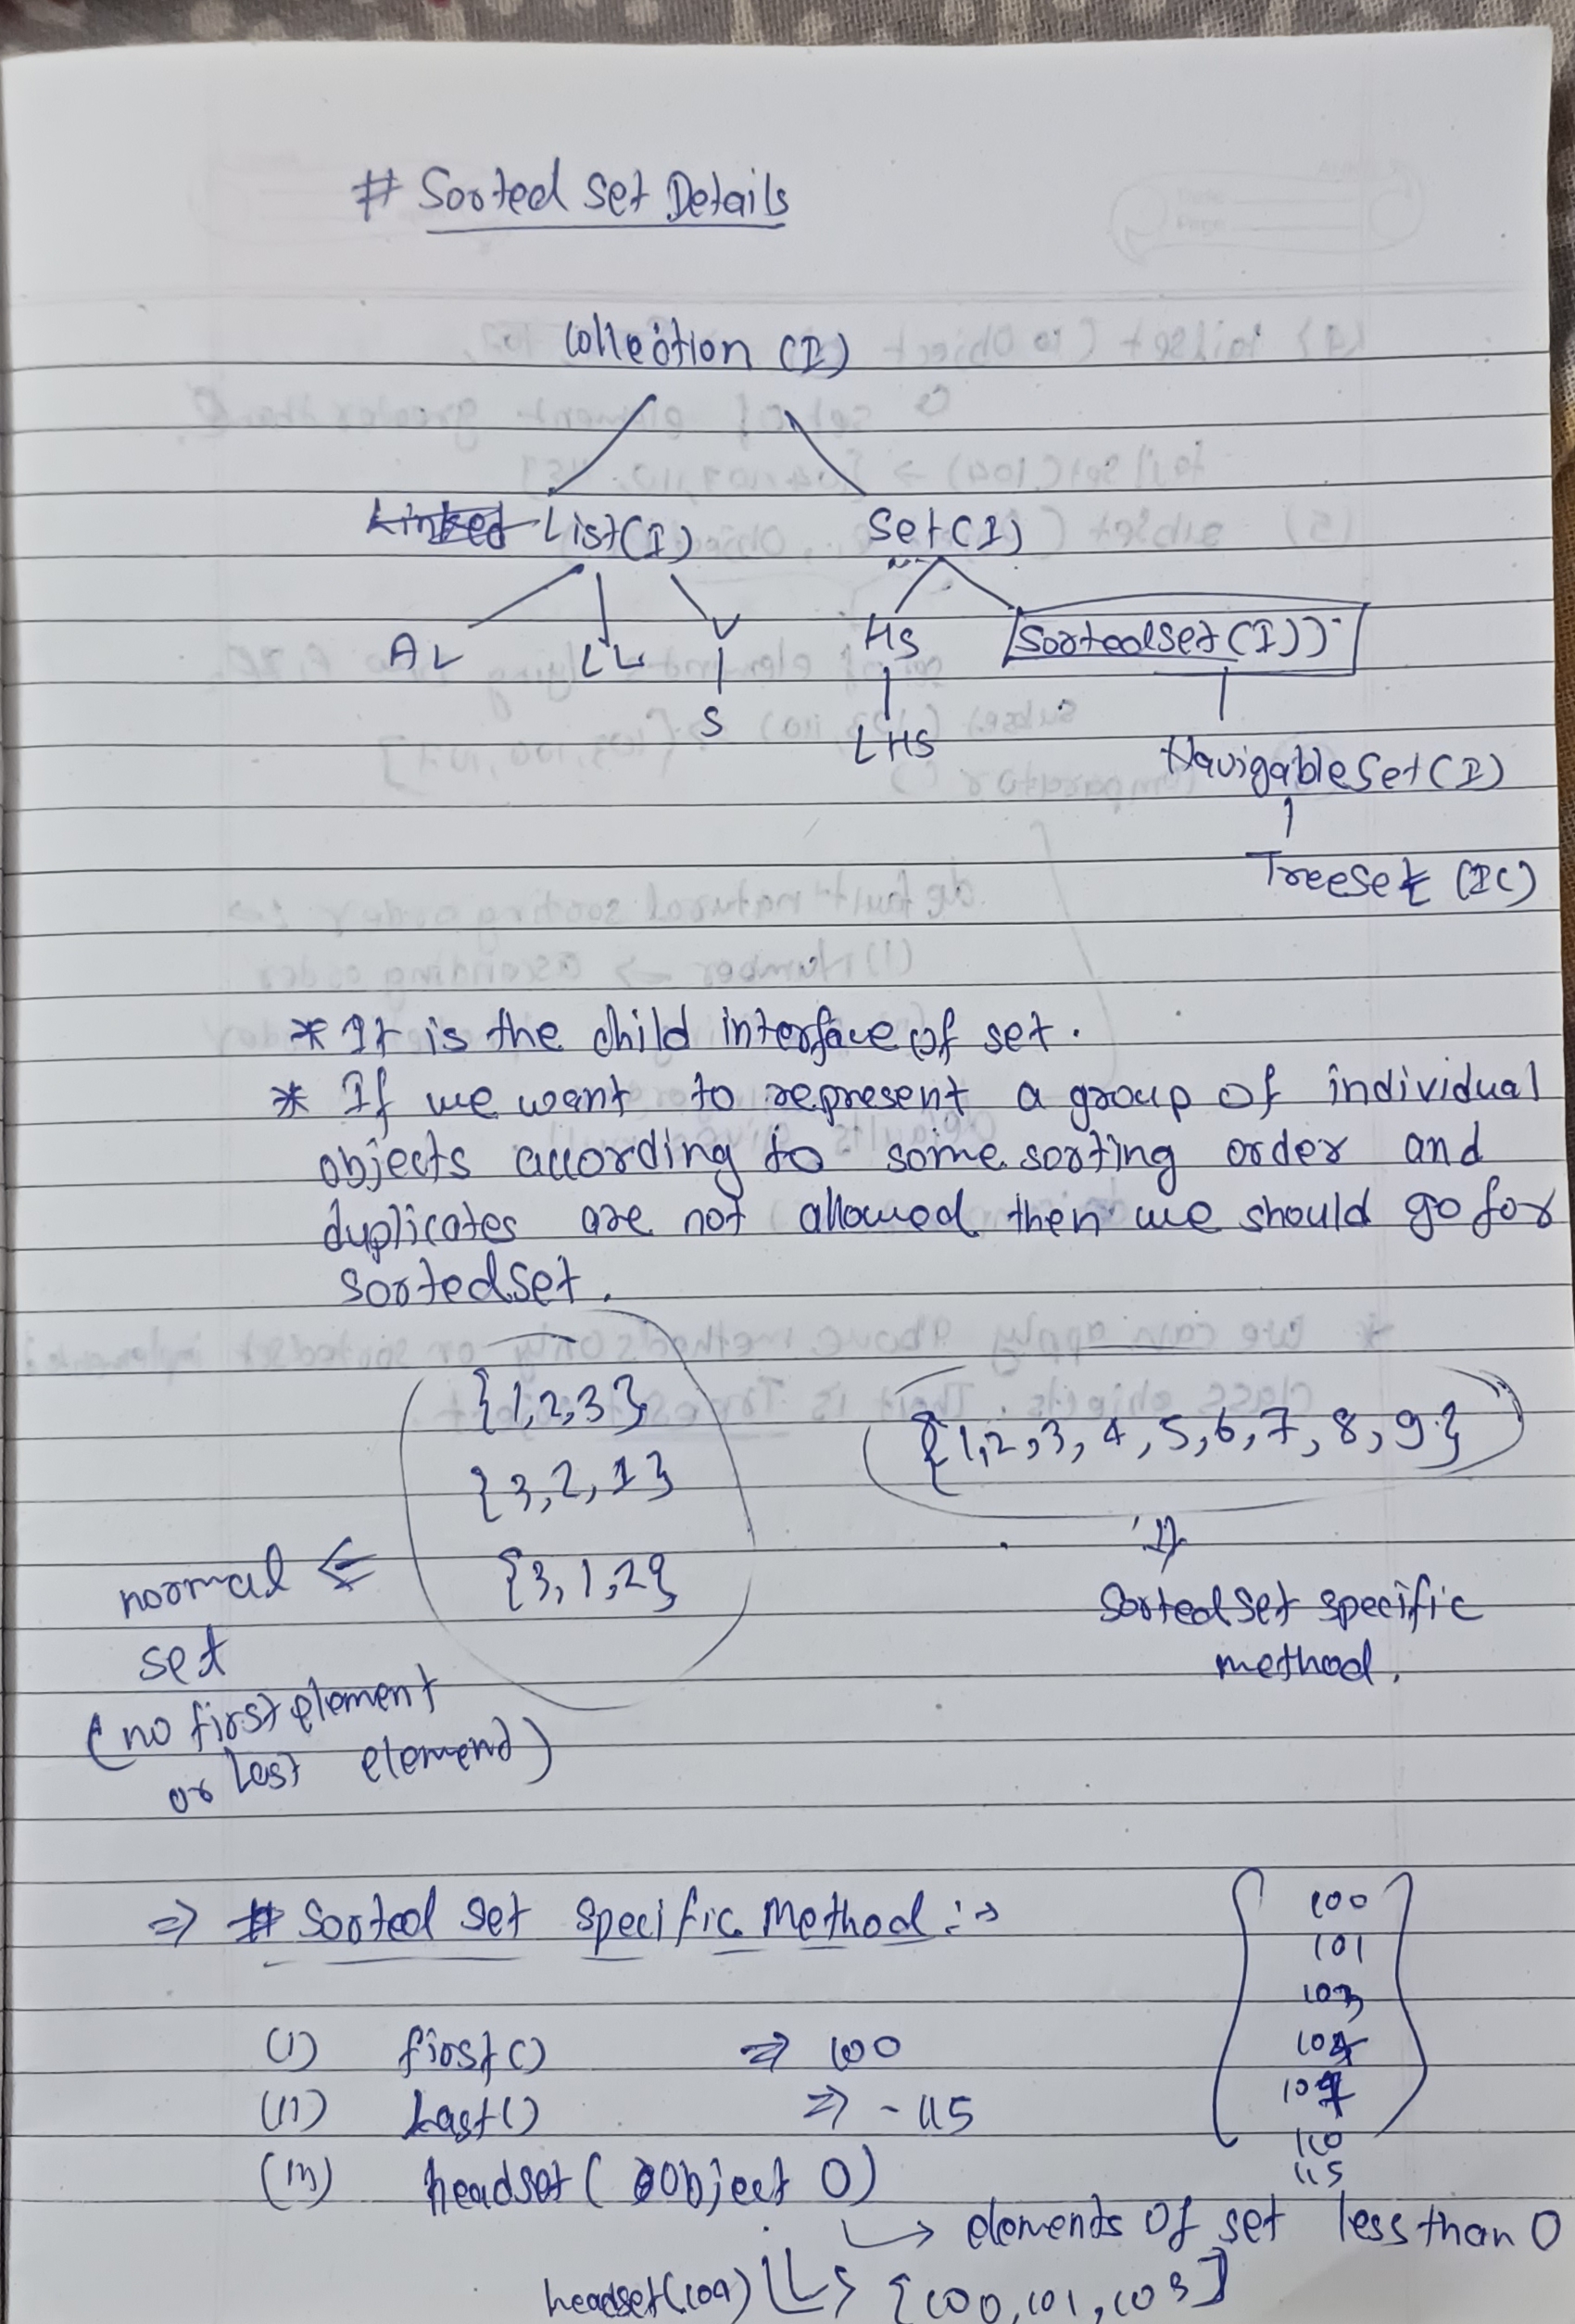 # Sorted Set Details
Collection (I)
Linked List(I) Set(I)
AL LL V HS SortedSet(I))
S LHS
NavigableSet(I)
TreeSet (IC)
* It is the child interface of set.
* If we want to represent a group of individual
objects according to some sorting order and
duplicates are not allowed then we should go for
sortedset.
{1,2,3}
{1,2,3,4,5,6,7,8,9}
{3,2,1}
{3,1,2}
normal ⇐
set
(no first element
or last element)
⇓
SortedSet specific
method.
⇒ # Sorted set specific Method :→
100
101
103
104
107
110
115
(I) first() ⇒ 100
(II) Last() ⇒ - 115
(III) headset( Object O)
↳ elements of set less than O
headset(104) ↳ {100,101,103}